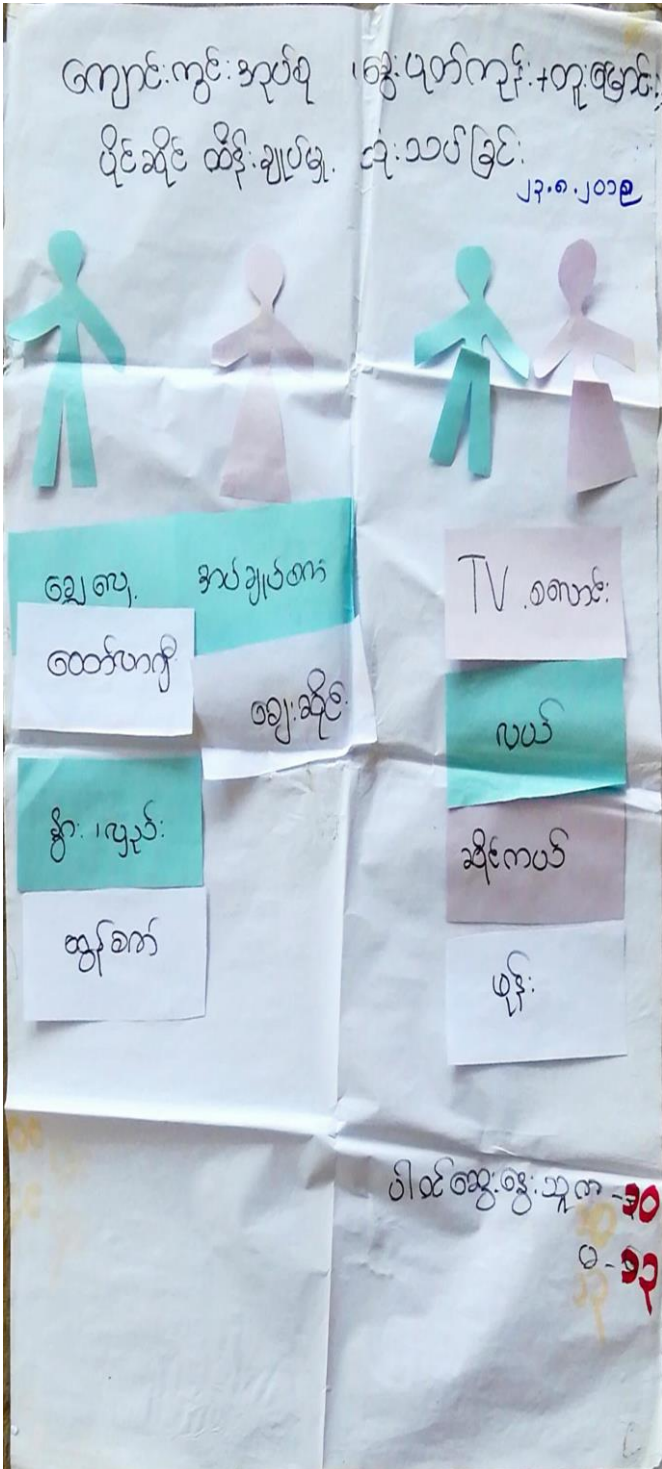 ကျောင်းကွင်းအုပ်စု ၊ နွေးပုတ်ကုန်း+တူးမြောင်း
ပိုင်ဆိုင် ထိန်းချုပ်မှု. သုံးသပ်ခြင်း
၂၃.၈.၂၀၁၉
ချေလှေ.
အပ်ချုပ်စက်
ထော်လာဂျီ
ချေးဆိုင်း
နွား၊လှည်း
ထွန်စက်
TV .စလောင်း
လယ်
ဆိုင်ကယ်
ဖုန်း
ပါဝင်ဆွေးနွေးသူ ကျ -၃၀
မ - ၁၃